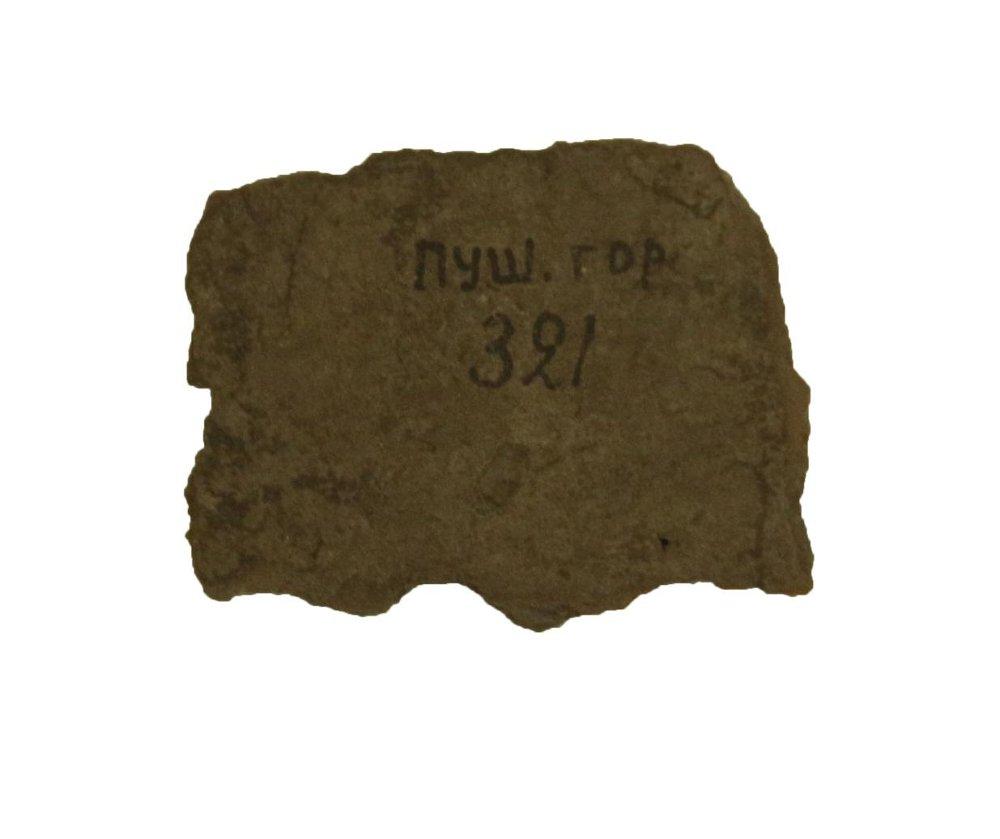 ПУШ. ГОР
321